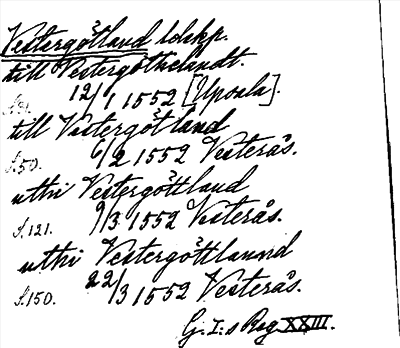 Vestergötland ldskp.
till Vestergöthelandt.
12/1 1552 [Upsala].
till Vestergötland
S.50. 6/2 1552 Vesterås.
uthi Vestergöttland
S.121. 9/3 1552 Vesterås.
uthi Vestergöttlannd
S.150. 22/3 1552 Vesterås.
G. I:s Reg XXIII.